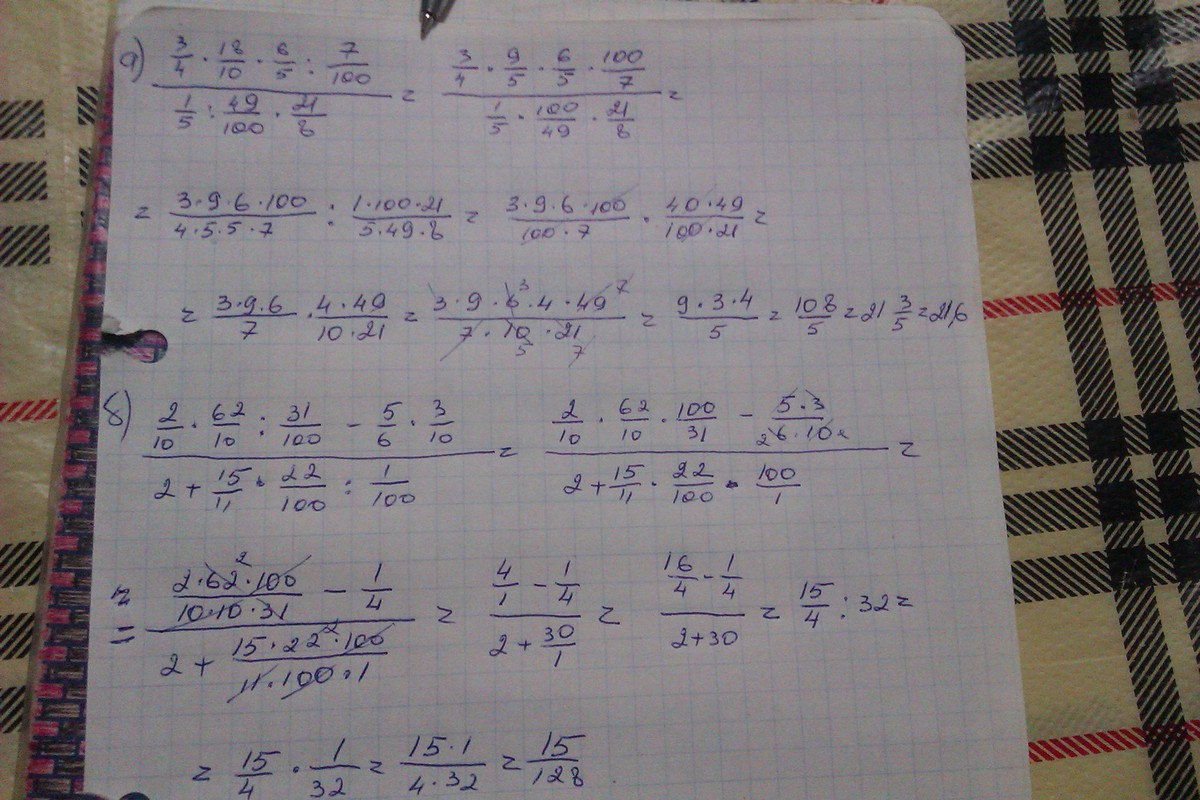 а) (3/4 · 18/10 · 6/5 : 7/100) / (1/5 : 49/100 · 21/8) = (3/4 · 9/5 · 6/5 · 100/7) / (1/5 · 100/49 · 21/8) =
= (3·9·6·100)/(4·5·5·7) : (1·100·21)/(5·49·8) = (3·9·6·100)/(100·7) · (40·49)/(100·21) =
= (3·9·6)/7 · (4·49)/(10·21) = (3·9·6³·4·49⁷)/(7·10₅·21₇) = (9·3·4)/5 = 108/5 = 21 3/5 = 21,6
б) (2/10 · 62/10 : 31/100 − 5/6 · 3/10) / (2 + 15/11 · 22/100 : 1/100) = (2/10 · 62/10 · 100/31 − (5·3)/(₂6·10₂)) / (2 + 15/11 · 22/100 · 100/1) =
= ((2·62²·100)/(10·10·31) − 1/4) / (2 + (15·22²·100)/(11·100·1)) = (4/1 − 1/4) / (2 + 30/1) = (16/4 − 1/4) / (2+30) = 15/4 : 32 =
= 15/4 · 1/32 = (15·1)/(4·32) = 15/128